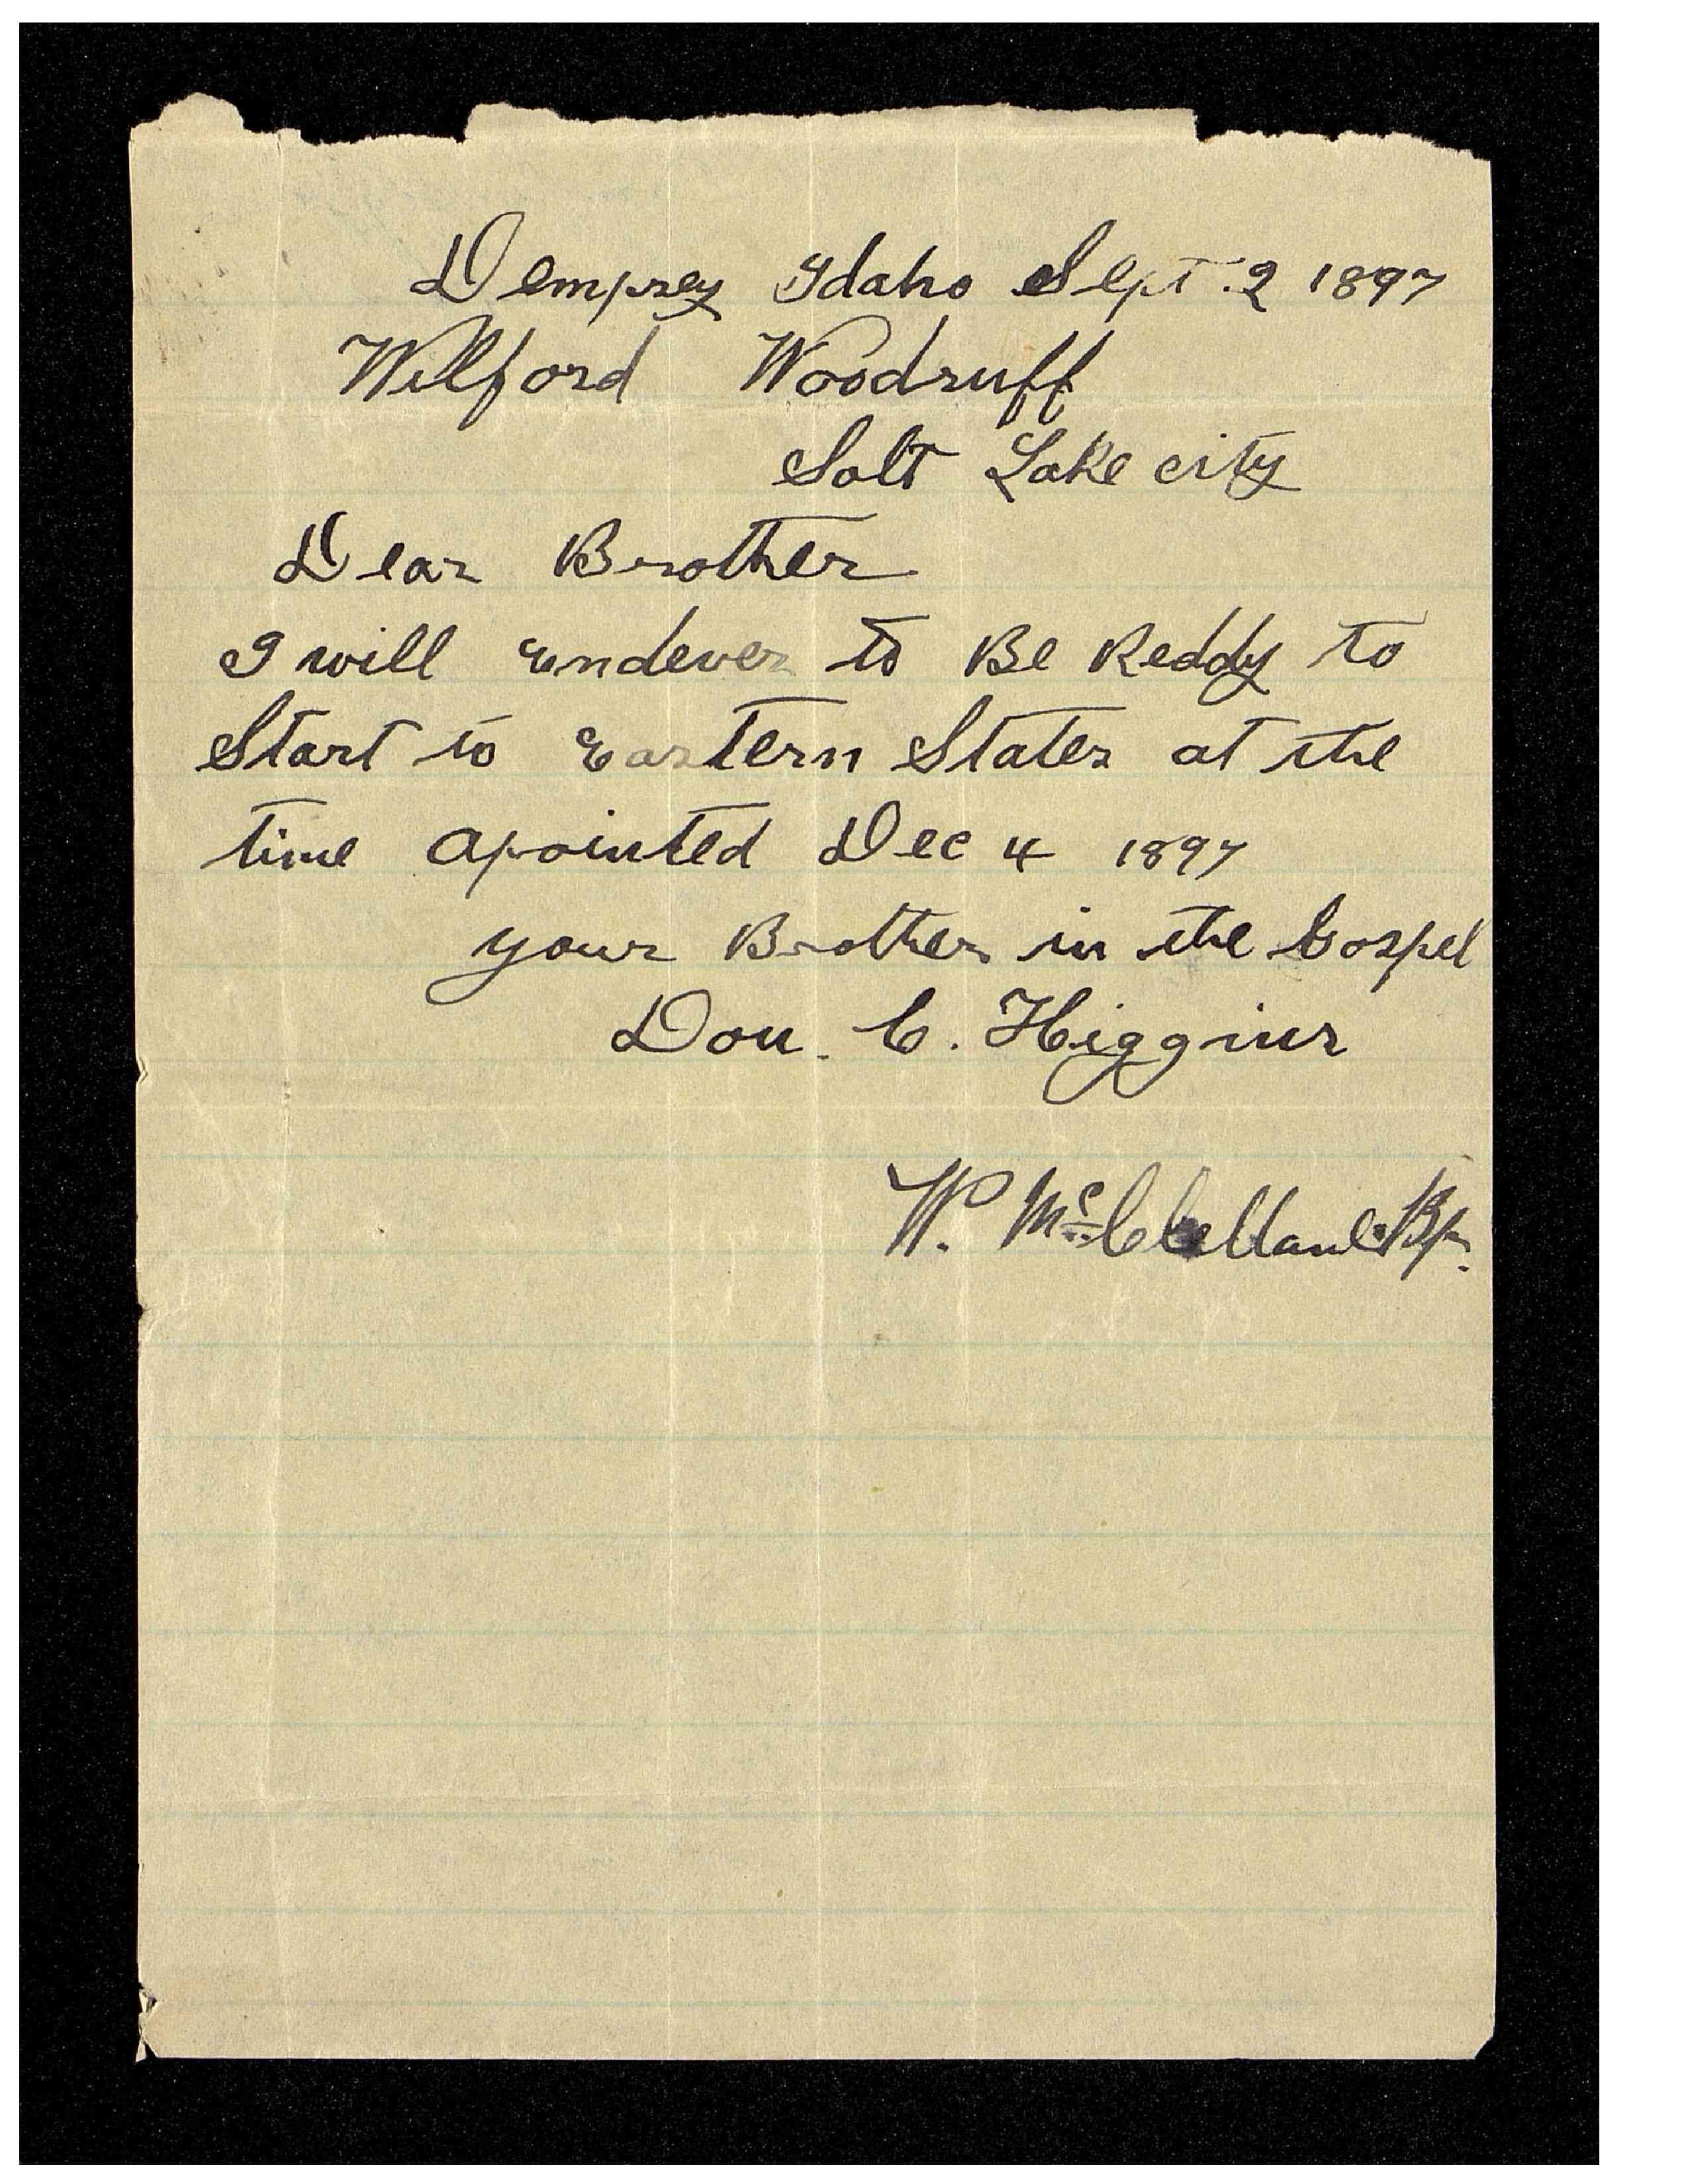 Dempsey Idaho Sept. 2 1897
Wilford Woodruff
Salt Lake city
Dear Brother
I will Endever to Be Reddy to
Start to Eastern States at the
time apointed Dec 4 1897
your Brother in the Gospel
Don. C. Higgins
W. McClelland Bp.